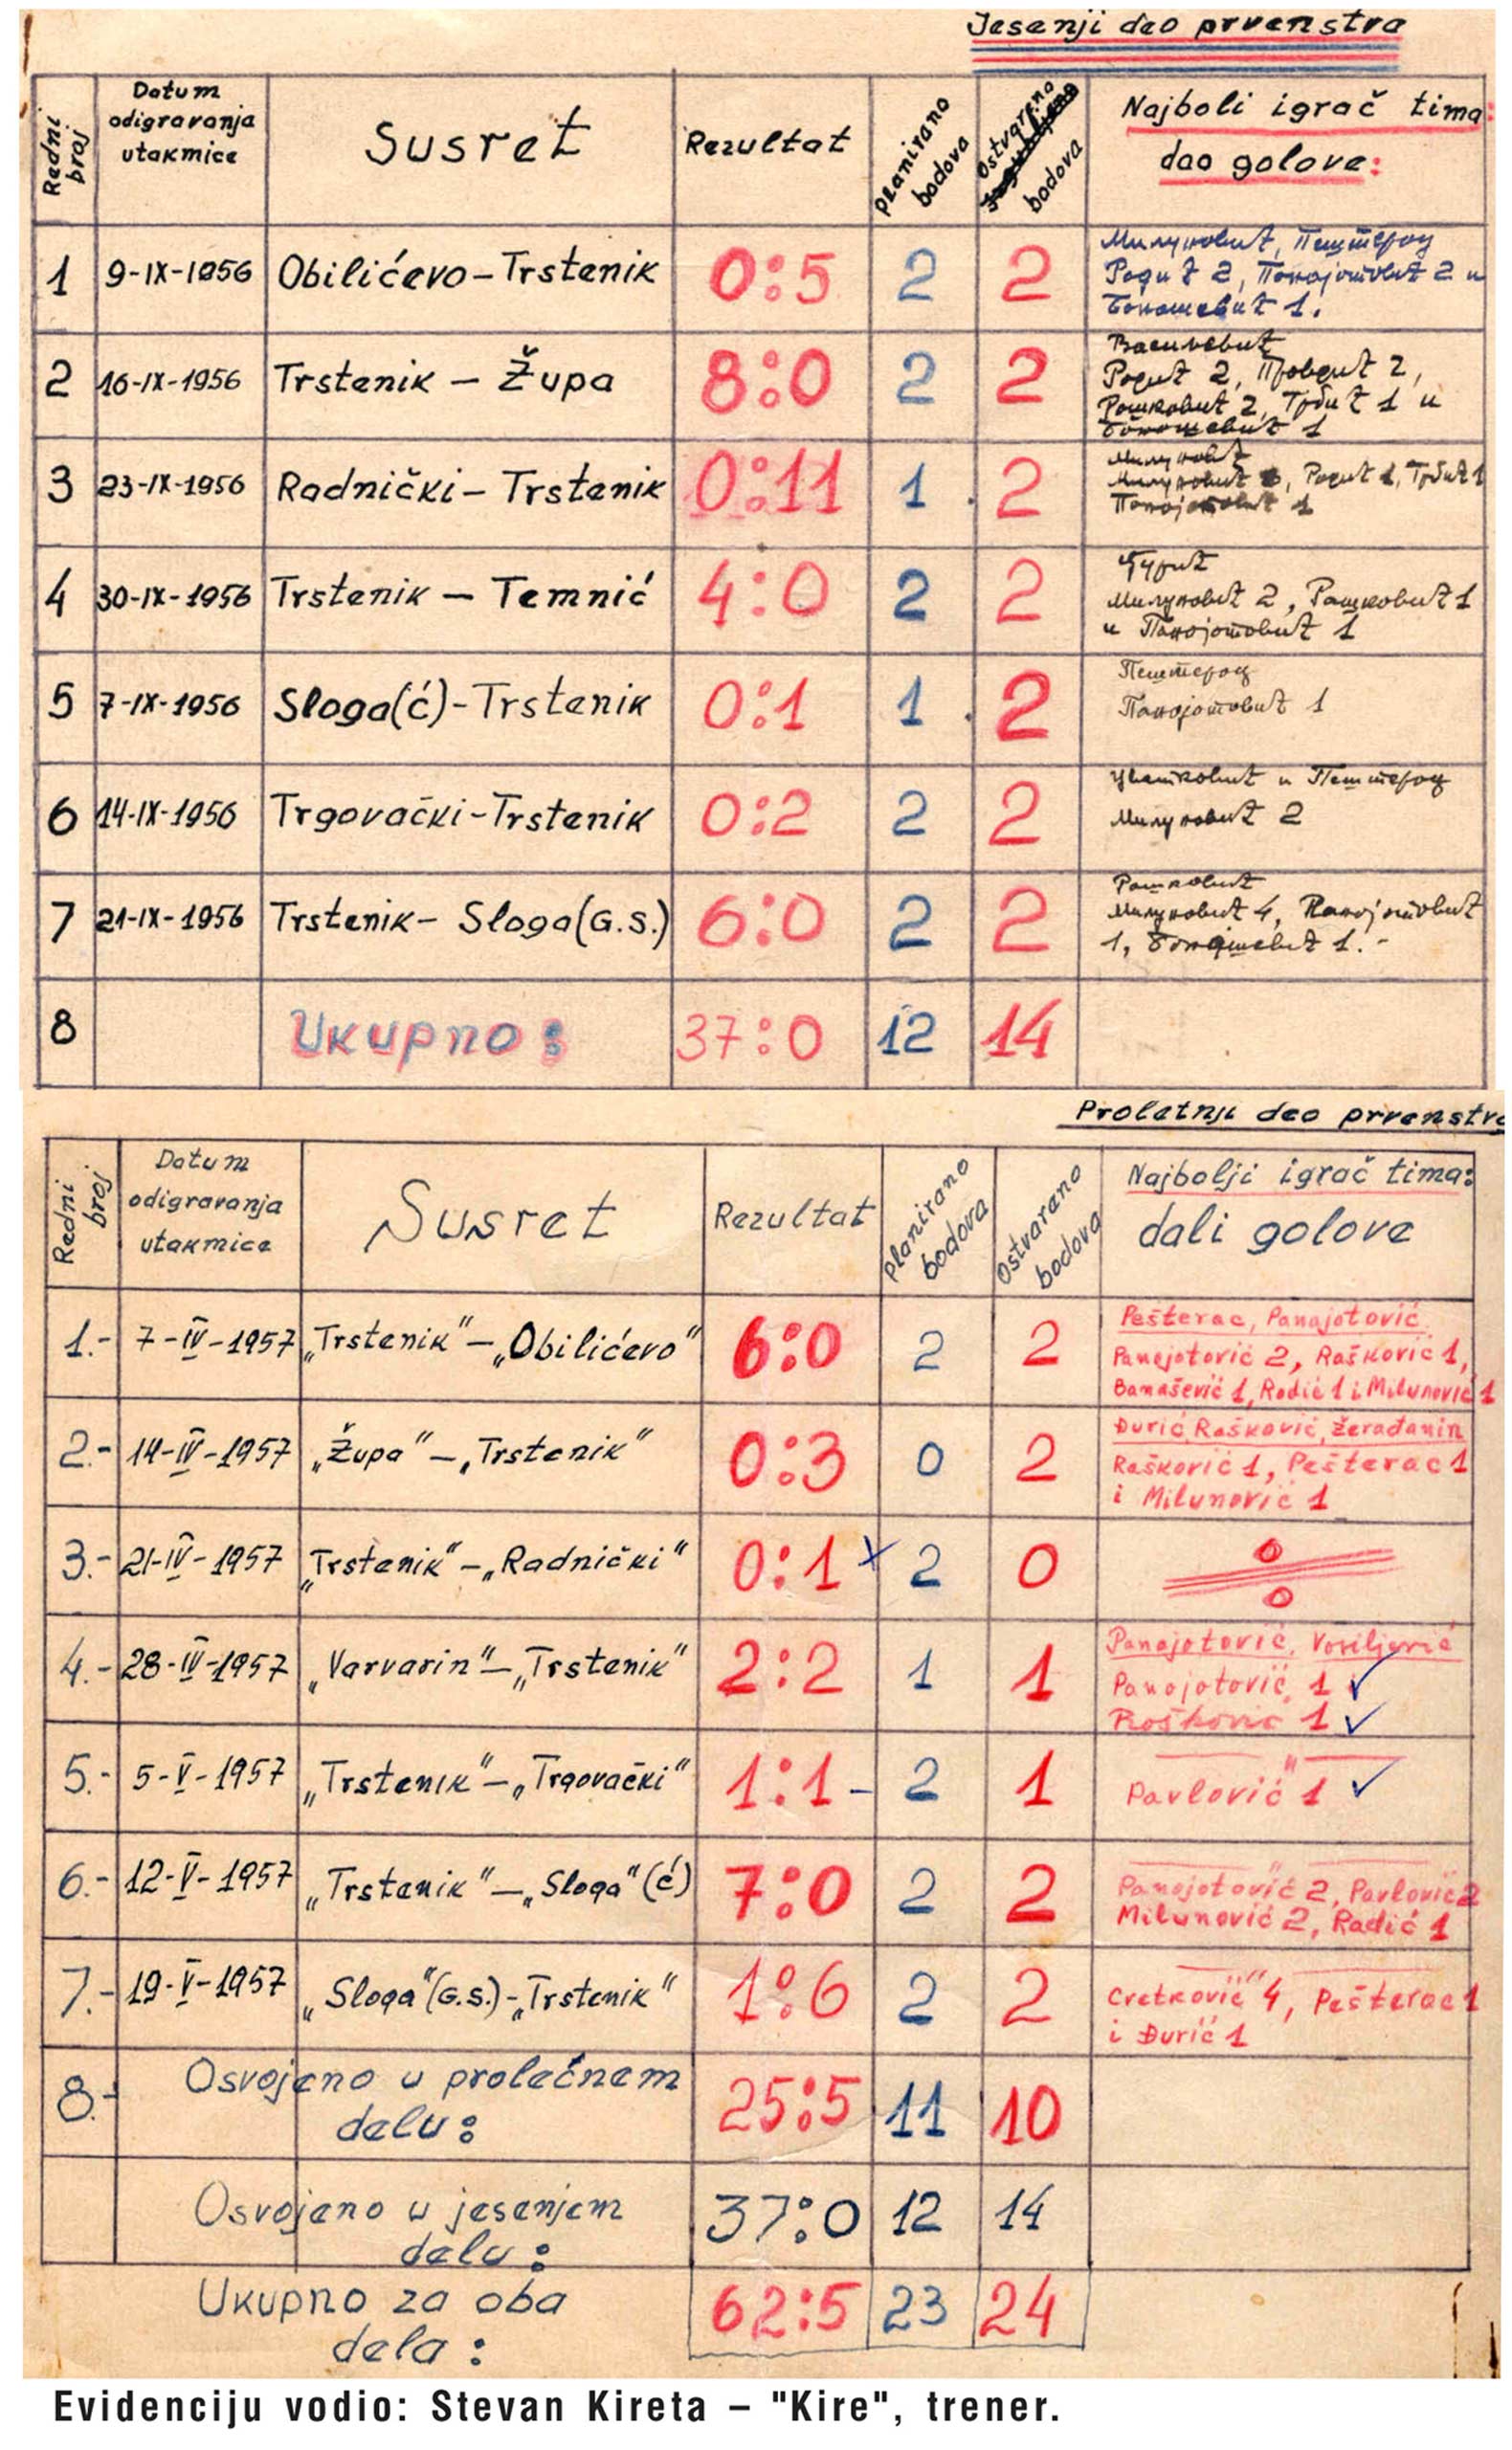 Jesenji deo prvenstva
Redni broj
Datum odigravanja utakmice
Susret
Rezultat
planirano bodova
Ostvareno bodova
Najboli igrač tima:
dao golove:
1 9-IX-1956 Obilićevo-Trstenik 0:5 2 2
Милуновић, Пештерац
Радић 2, Панајотовић 2 и
Банашевић 1.
2 16-IX-1956 Trstenik - Župa 8:0 2 2
Васиљевић
Радић 2, Павловић 2,
Рашковић 2, Трбић 1 и
Банашевић 1
3 23-IX-1956 Radnički - Trstenik 0:11 1. 2
Милуновић
Милуновић, Радић 1, Трбић 1
Панајотовић 1
4 30-IX-1956 Trstenik - Temnić 4:0 2 2
Ђурић
Милуновић 2, Рашковић 1
и Панајотовић 1
5 7-IX-1956 Sloga(ć)-Trstenik 0:1 1. 2
Пештерац
Панајотовић 1
6 14-IX-1956 Trgovački-Trstenik 0:2 2 2
Цветковић и Пештерац
Милуновић 2
7 21-IX-1956 Trstenik- Sloga(G.S.) 6:0 2 2
Рашковић
Милуновић 4, Панајотовић
1, Банашевић 1.-
8 Ukupno: 37:0 12 14
Proletnji deo prvenstva
Redni broj
Datum odigravanja utakmice
Susret
Rezultat
planirano bodova
Ostvareno bodova
Najbolji igrač tima:
dali golove
1.- 7-IV-1957 „Trstenik"-„Obilićevo" 6:0 2 2
Pešterac, Panajotović
Panajotović 2, Rašković 1,
Banašević 1, Radić 1 i Milunović 1
2.- 14-IV-1957 „Župa"-„Trstenik" 0:3 0 2
Đurić, Rašković, Žerađanin
Rašković 1, Pešterac 1
i Milunović 1
3.- 21-IV-1957 „Trstenik"-„Radnički" 0:1 x 2 0
0
0
4.- 28-IV-1957 „Varvarin"-„Trstenik" 2:2 1 1
Panajotović, Vasiljević
Panajotović 1 ✓
Rašković 1 ✓
5.- 5-V-1957 „Trstenik"-„Trgovački" 1:1- 2 1
"
Pavlović 1 ✓
6.- 12-V-1957 „Trstenik"-„Sloga"(ć) 7:0 2 2
Panajotović 2, Pavlović 2
Milunović 2, Radić 1
7.- 19-V-1957 „Sloga"(G.S.)-„Trstenik" 1:6 2 2
Cvetković 4, Pešterac 1
i Đurić 1
8.- Osvojeno u prolećnem 25:5 11 10
delu:
Osvojeno u jesenjem 37:0 12 14
delu:
Ukupno za oba 62:5 23 24
dela:
Evidenciju vodio: Stevan Kireta – "Kire", trener.